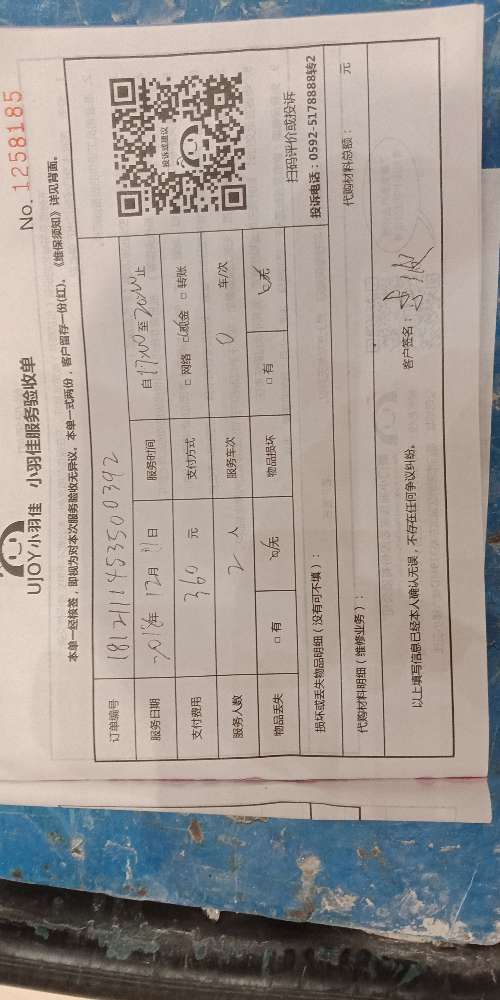 UJOY小羽佳 小羽佳服务验收单
No. 1258185
本单一经核签，即视为对本次服务验收无异议。本单一式两份，客户留存一份(红)。《维保须知》详见背面。
订单编号 181211145353500392
服务日期 2018年 12月 11日 服务时间 自17:00至20:00止
支付费用 360 元 支付方式 □ 网络 □ 现金 □ 转账
服务人数 2 人 服务车次 0 车/次
物品丢失 □ 有 □ 无 物品损坏 □ 有 □ 无
投诉或建议
扫码评价或投诉
投诉电话：0592-5178888转2
损坏或丢失物品明细（没有可不填）：
代购材料明细（维修业务）： 代购材料总额： 元
以上填写信息已经本人确认无误，不存在任何争议纠纷。 客户签名：